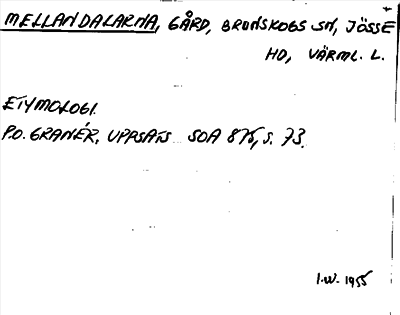 MELLANDALARNA, GÅRD, BRUNSKOGS SN, JÖSSE
HD, VÄRML. L.
ETYMOLOGI.
P.O. GRANÉR, UPPSATS SOA 875, S. 73.
I.W. 1955